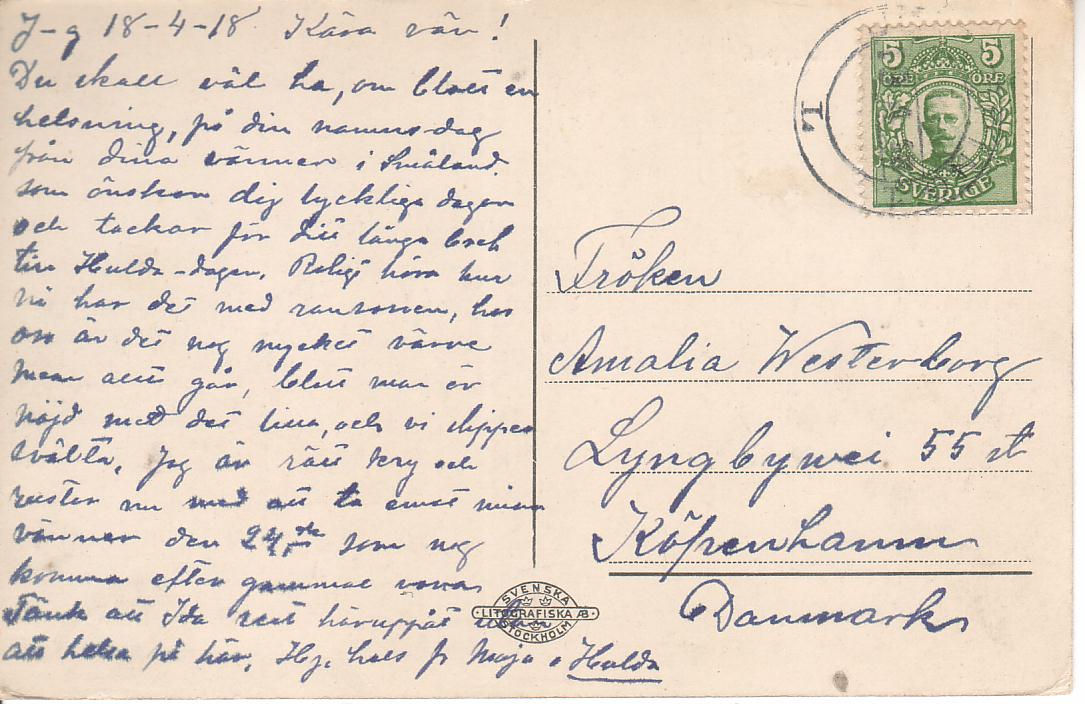 J-g 18-4-18 Kära vän!
Du skall väl ha, om blott en
helsning, på din namns-dag
från dina vänner i Småland.
som önskar dig lyckliga dagar
och tackar för ditt långa bref
till Hulda-dagen. Roligt höra hur
ni har det med ransonen, hos
oss är det nog mycket värre
men allt går, blott man är
nöjd med det lilla, och vi slipper
svälta. Jag är rätt kry och
nu med att ta emot mina
vänner den 24.de som nog
komma efter gammal vana
Tänk att Ida rest häruppåt utan
att helsa på här, Hj. hels fr Maja o Hulda
5 5
ÖRE ÖRE
SVERIGE
Fröken
Amalia Westerborg
Lyngbywei 55 st
Köpenhamn
Danmark
SVENSKA
LITOGRAFISKA AB
STOCKHOLM